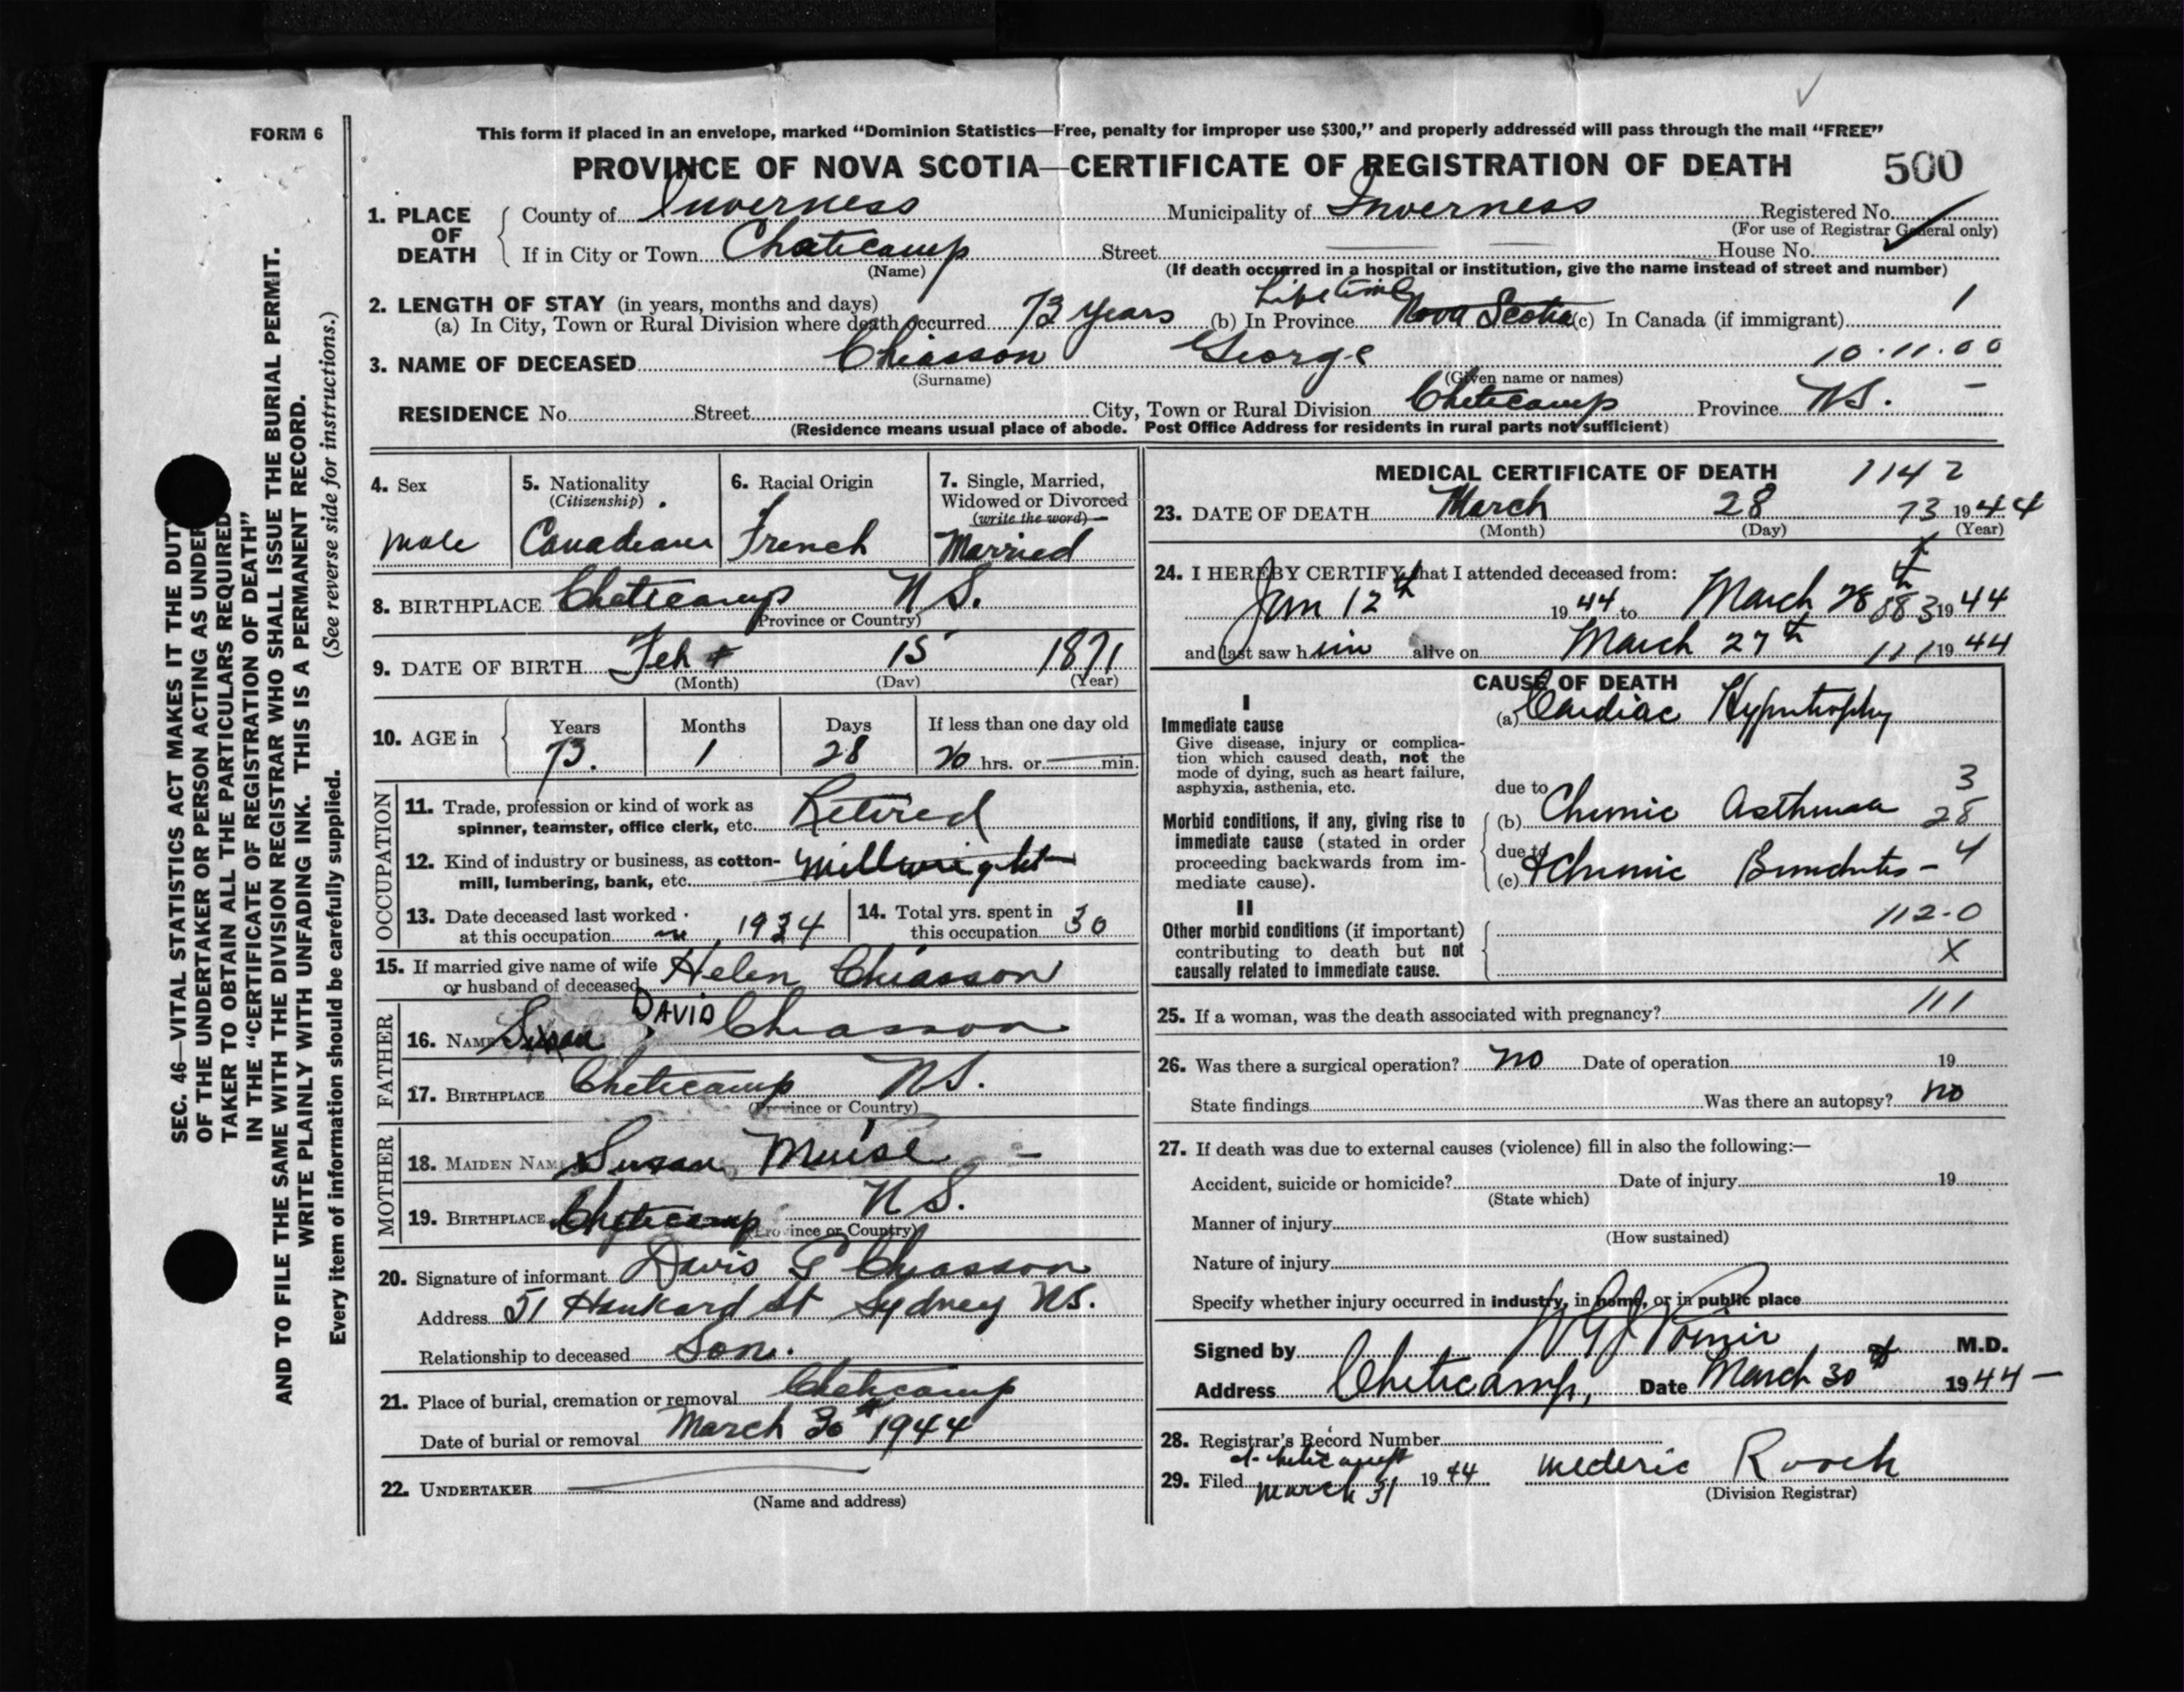 FORM 6
This form if placed in an envelope, marked “Dominion Statistics—Free, penalty for improper use $300,” and properly addressed will pass through the mail “FREE”
PROVINCE OF NOVA SCOTIA—CERTIFICATE OF REGISTRATION OF DEATH 500
1. PLACE OF DEATH
County of Inverness Municipality of Inverness Registered No.
(For use of Registrar General only)
If in City or Town Chaticamp Street House No.
(Name) (If death occurred in a hospital or institution, give the name instead of street and number)
2. LENGTH OF STAY (in years, months and days)
Life time 1
(a) In City, Town or Rural Division where death occurred 73 years (b) In Province Nova Scotia (c) In Canada (if immigrant)
3. NAME OF DECEASED Chiasson George 10.11.00
(Surname) (Given name or names)
RESIDENCE No. Street City, Town or Rural Division Cheticamp Province N.S. -
(Residence means usual place of abode. Post Office Address for residents in rural parts not sufficient)
4. Sex
male
5. Nationality
(Citizenship)
Canadian
6. Racial Origin
French
7. Single, Married,
Widowed or Divorced
(write the word)
Married
8. BIRTHPLACE Cheticamp N S.
(Province or Country)
9. DATE OF BIRTH Feb 15 1871
(Month) (Day) (Year)
10. AGE in
Years Months Days If less than one day old
73. 1 28 hrs. or min.
OCCUPATION
11. Trade, profession or kind of work as
spinner, teamster, office clerk, etc. Retired
12. Kind of industry or business, as cotton-
mill, lumbering, bank, etc. Millwright
13. Date deceased last worked
at this occupation in 1934
14. Total yrs. spent in
this occupation 30
15. If married give name of wife
or husband of deceased Helen Chiasson
FATHER
16. NAME Susan DAVID Chiasson
17. BIRTHPLACE Cheticamp N S.
(Province or Country)
MOTHER
18. MAIDEN NAME Susan Muise -
19. BIRTHPLACE Cheticamp N S.
(Province or Country)
20. Signature of informant Davis P Chiasson
Address 51 Hankard St Sydney N.S.
Relationship to deceased Son.
21. Place of burial, cremation or removal Cheticamp
Date of burial or removal March 30 1944
22. UNDERTAKER
(Name and address)
MEDICAL CERTIFICATE OF DEATH 1142
23. DATE OF DEATH March 28 73 1944
(Month) (Day) (Year)
24. I HEREBY CERTIFY that I attended deceased from:
Jan 12th 1944 to March 28th 1944
and last saw him alive on March 27th 111 1944
CAUSE OF DEATH
I
Immediate cause
Give disease, injury or complica-
tion which caused death, not the
mode of dying, such as heart failure,
asphyxia, asthenia, etc.
(a) Cardiac Hypertrophy
due to 3
Morbid conditions, if any, giving rise to
immediate cause (stated in order
proceeding backwards from im-
mediate cause).
(b) Chronic Asthma 28
due to
(c) & Chronic Bronchitis - 4
II
Other morbid conditions (if important)
contributing to death but not
causally related to immediate cause.
112-0
X
25. If a woman, was the death associated with pregnancy? 111
26. Was there a surgical operation? No Date of operation 19
State findings Was there an autopsy? No
27. If death was due to external causes (violence) fill in also the following:—
Accident, suicide or homicide? Date of injury 19
(State which)
Manner of injury
(How sustained)
Nature of injury
Specify whether injury occurred in industry, in home, or in public place
Signed by Poirier M.D.
Address Cheticamp, Date March 30th 1944 -
28. Registrar's Record Number
at Cheticamp
29. Filed March 31 1944 Mederic Roach
(Division Registrar)
SEC. 46—VITAL STATISTICS ACT MAKES IT THE DUTY
OF THE UNDERTAKER OR PERSON ACTING AS UNDER
TAKER TO OBTAIN ALL THE PARTICULARS REQUIRED
IN THE “CERTIFICATE OF REGISTRATION OF DEATH”
AND TO FILE THE SAME WITH THE DIVISION REGISTRAR WHO SHALL ISSUE THE BURIAL PERMIT.
WRITE PLAINLY WITH UNFADING INK. THIS IS A PERMANENT RECORD.
Every item of information should be carefully supplied. (See reverse side for instructions.)